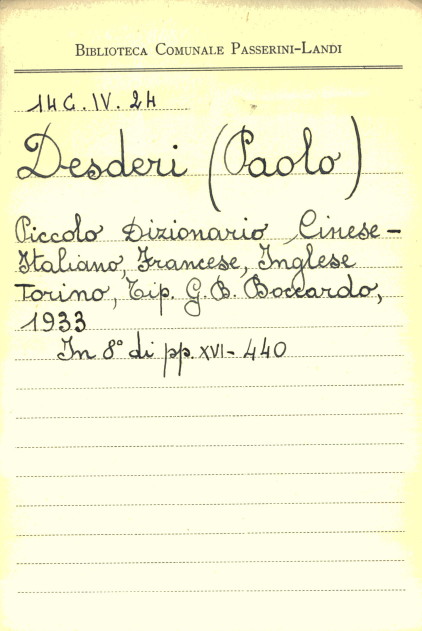 Biblioteca Comunale Passerini-Landi
14 C. IV. 24
Desderi (Paolo)
Piccolo Dizionario Cinese-
Italiano, Francese, Inglese
Torino, Tip. G. B. Boccardo,
1933
In 8° di pp. XVI - 440